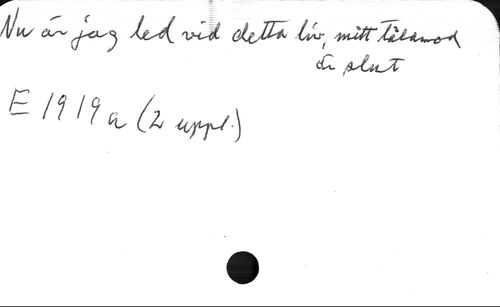 Nu är jag led vid detta liv, mitt tålamod
är slut
E 1919 a (2 uppl.)